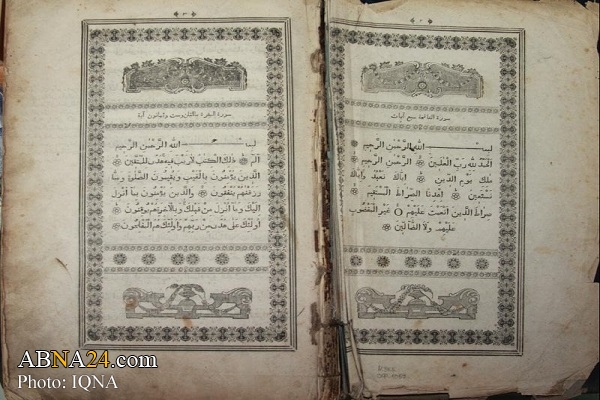 ٢
سورة الفاتحة سبع آيات
بســـــم الله الرَّحْمٰنِ الرَّحِيمِ
الْحَمْدُ لِلّٰهِ رَبِّ الْعٰلَمِينَ ۞ الرَّحْمٰنِ الرَّحِيمِ
مٰلِكِ يَوْمِ الدِّينِ ۞ اِيَّاكَ نَعْبُدُ وَاِيَّاكَ
نَسْتَعِينُ ۞ اِهْدِنَا الصِّرَاطَ الْمُسْتَقِيمَ ۞
صِرَاطَ الَّذِينَ اَنْعَمْتَ عَلَيْهِمْ ○ غَيْرِ الْمَغْضُوبِ
عَلَيْهِمْ وَلَا الضَّالِّينَ ۞
٣
سورة البقرة مائتان وست وثمانون آية
بســـــم الله الرَّحْمٰنِ الرَّحِيمِ
الٓمٓ ۞ ذٰلِكَ الْكِتٰبُ لَا رَيْبَ فِيهِ هُدًى لِلْمُتَّقِينَ ۞
الَّذِينَ يُؤْمِنُونَ بِالْغَيْبِ وَيُقِيمُونَ الصَّلٰوةَ وَمِمَّا
رَزَقْنٰهُمْ يُنْفِقُونَ ۞ وَالَّذِينَ يُؤْمِنُونَ بِمَا اُنْزِلَ
اِلَيْكَ وَمَا اُنْزِلَ مِنْ قَبْلِكَ وَبِالْاٰخِرَةِ هُمْ يُوقِنُونَ ۞
اُولٰئِكَ عَلٰى هُدًى مِنْ رَبِّهِمْ وَاُولٰئِكَ هُمُ الْمُفْلِحُونَ ۞
ABNA24.com
Photo: IQNA